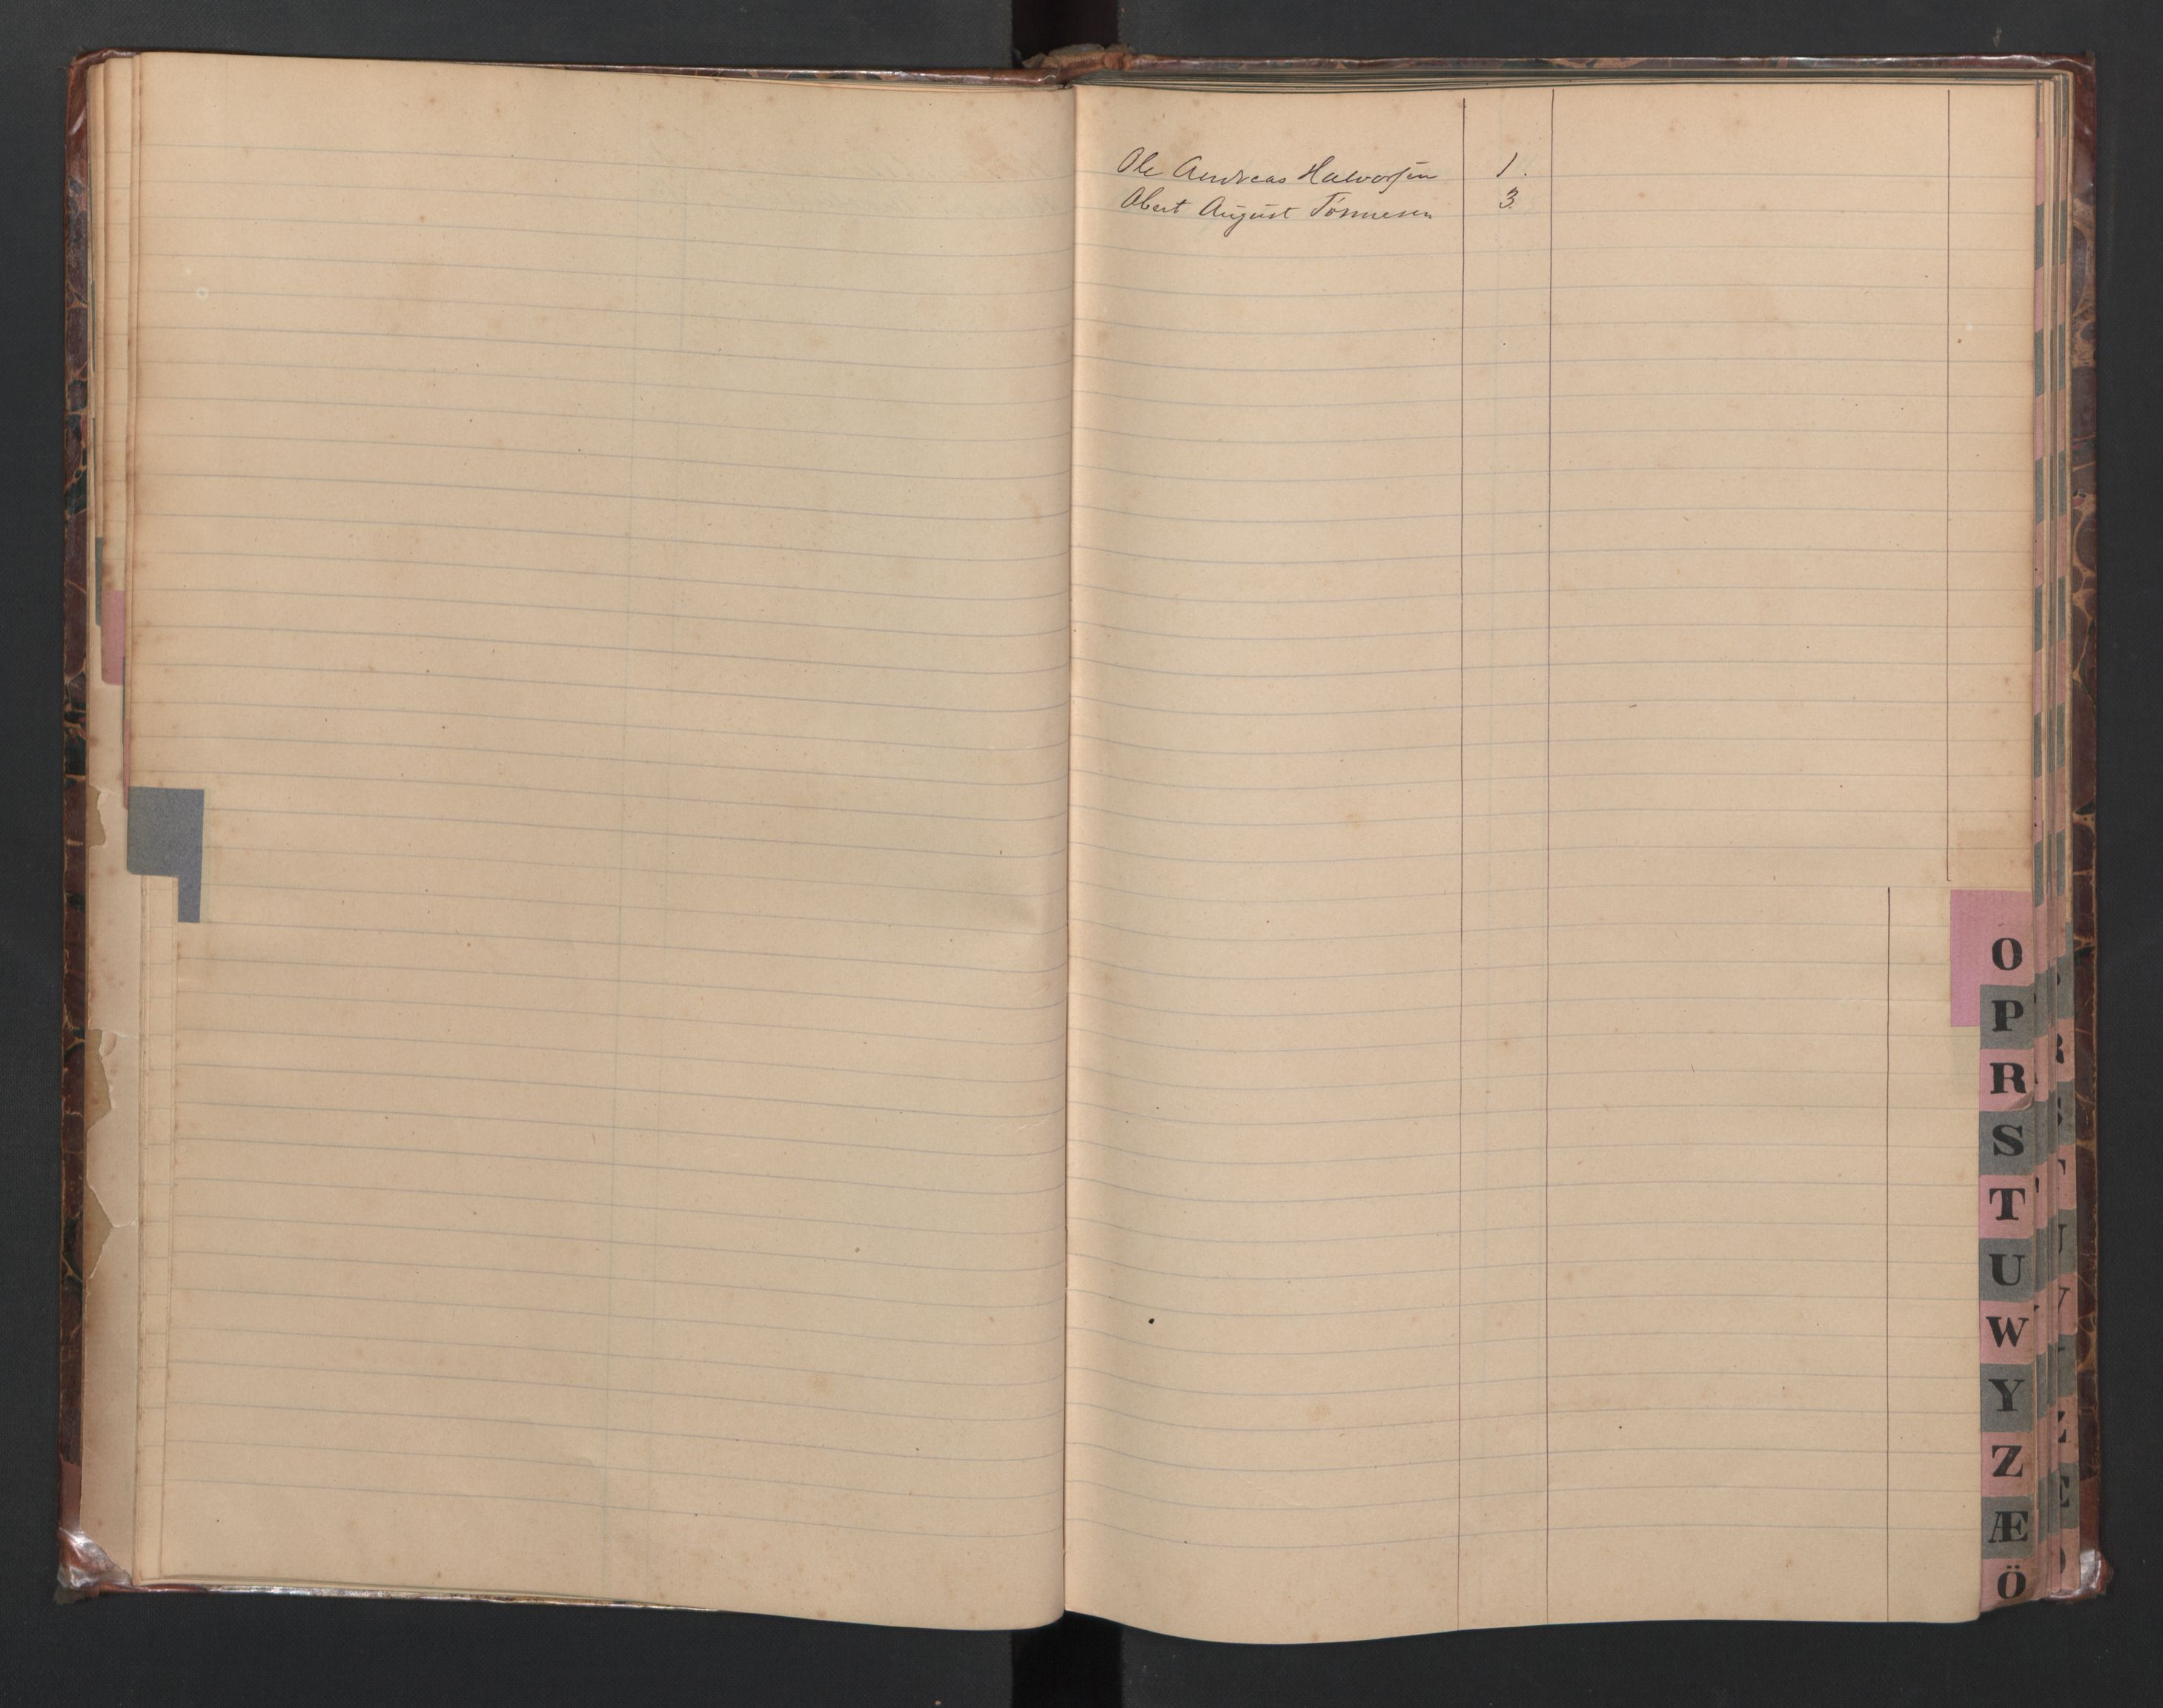 Ole Andreas Halvorsen 1.
Obert August Tönnesen 3
O
P
R
S
T
U
W
Y
Z
Æ
Ö